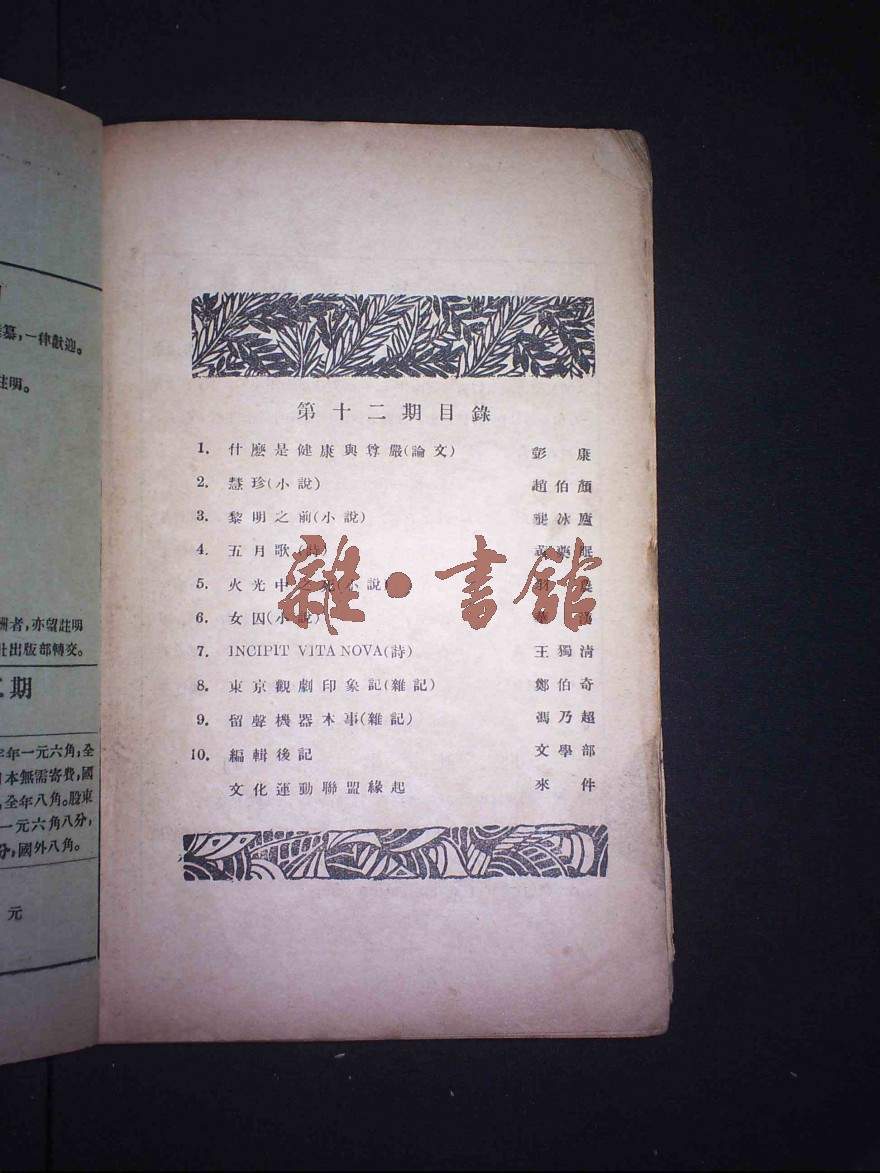 纂,一律歡迎。
註明。
酬者,亦望註明
社出版部轉交。
二期
年一元六角,全
日本無需寄費,國
,全年八角。股東
一元六角八分,
分,國外八角。
元
第十二期目錄
1. 什麼是健康與尊嚴(論文) 彭康
2. 慧珍(小說) 趙伯顏
3. 黎明之前(小說) 龔冰廬
4. 五月歌(詩) 黃藥眠
5. 火光中之死(小說)
6. 女囚(小說) 華漢
7. INCIPIT VITA NOVA(詩) 王獨清
8. 東京觀劇印象記(雜記) 鄭伯奇
9. 留聲機器本事(雜記) 馮乃超
10. 編輯後記 文學部
文化運動聯盟緣起 來件
雜·書館